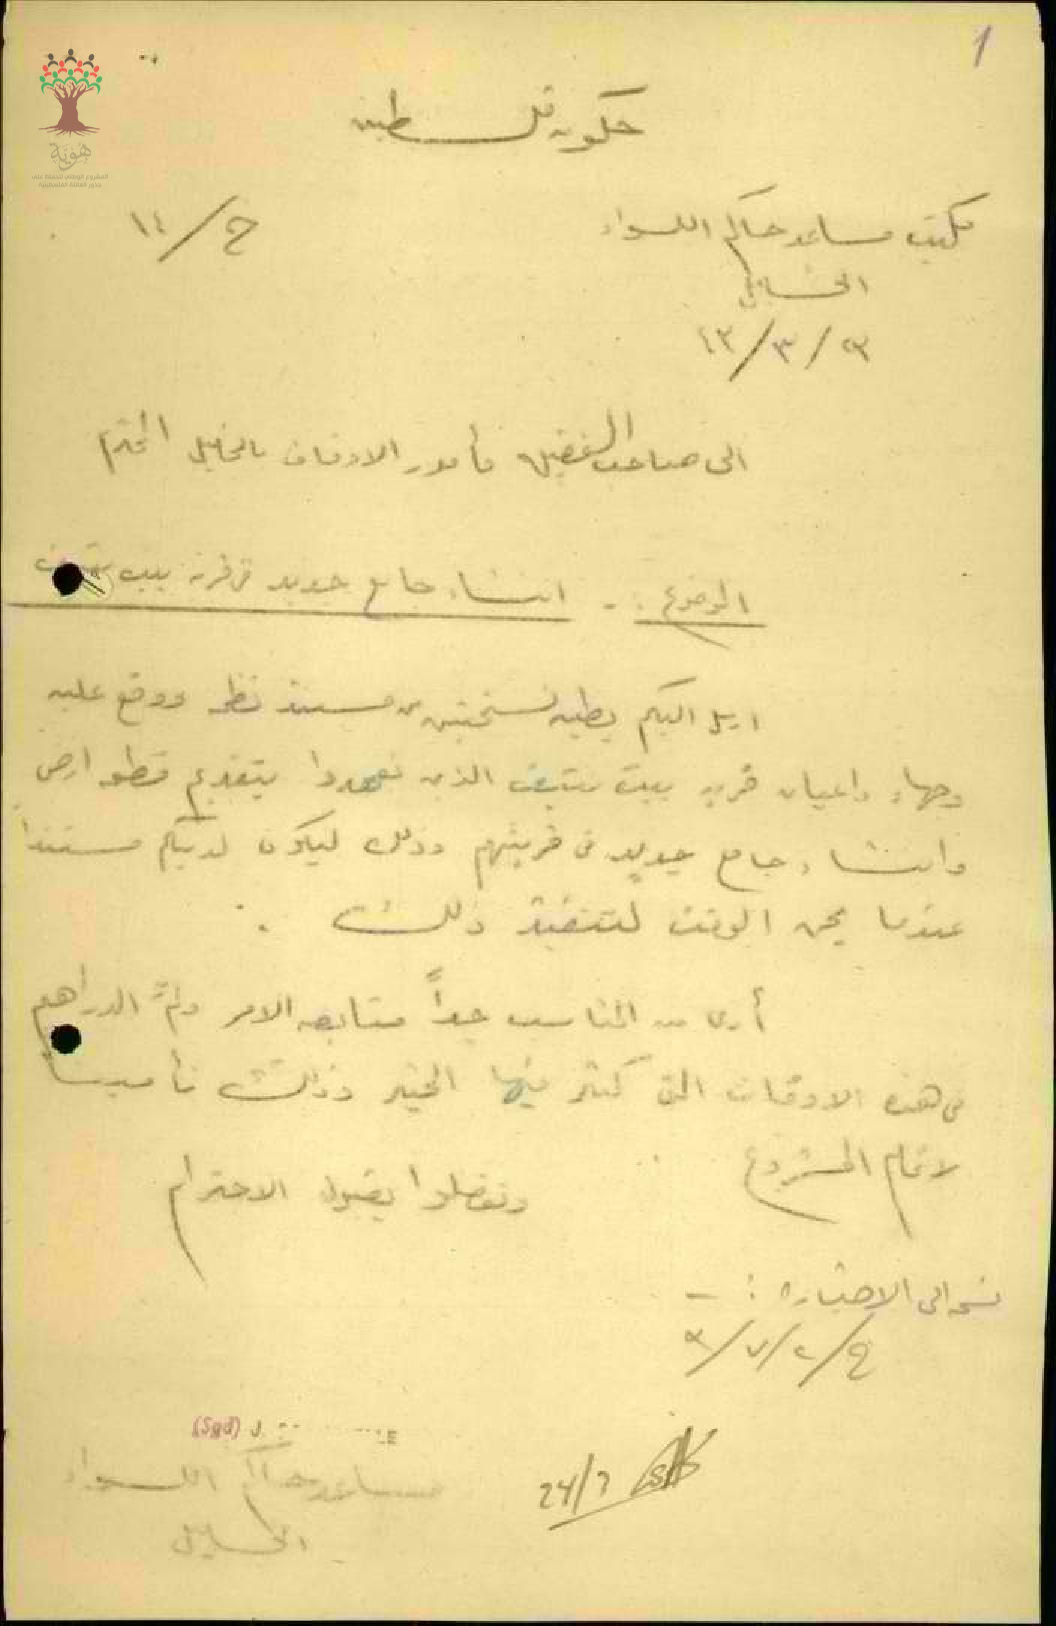 1
هوية
حكومة فلسطين
مكتب مساعد حاكم اللواء
خ/١٤
الخليل
٢٣/٣/٤٣
الى صاحب الفضيلة مأمور الاوقاف بالخليل المحترم
الموضوع :- انشاء جامع جديد في قرية بيت نتيف
ارسل اليكم بطيه نسختين من مستند نظم ووقع عليه
وجهاء واعيان قرية بيت نتيف الذين تعهدوا بتقديم قطعة ارض
وانشاء جامع جديد في قريتهم وذلك ليكون لديكم مستنداً
عندما يحين الوقت لتنفيذ ذلك .
أرى من المناسب جداً متابعة الامر ولمّ الدراهم
في هذه الاوقات التي كثر فيها الخير وذلك تأميناً
لاتمام المشروع
وتفضلوا بقبول الاحترام
نسخة الى الاضبارة :-
خ/٢/٧/٣
(Sgd)
مساعد حاكم اللواء
الخليل
24/3